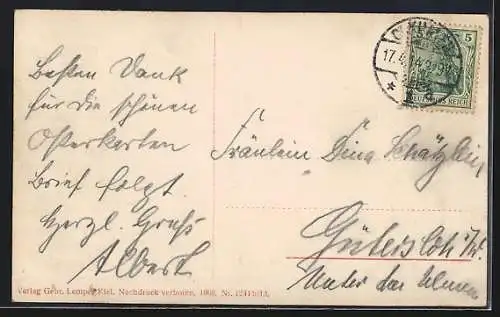 Besten Dank
für die schönen
Osterkarten
Brief folgt.
Herzl. Gruß
Albert
Fräulein Dina
Gütersloh i/W.
Unter den Ulmen
5
DEUTSCHES REICH
17.
Verlag Gebr. Lempe, Kiel. Nachdruck verboten.